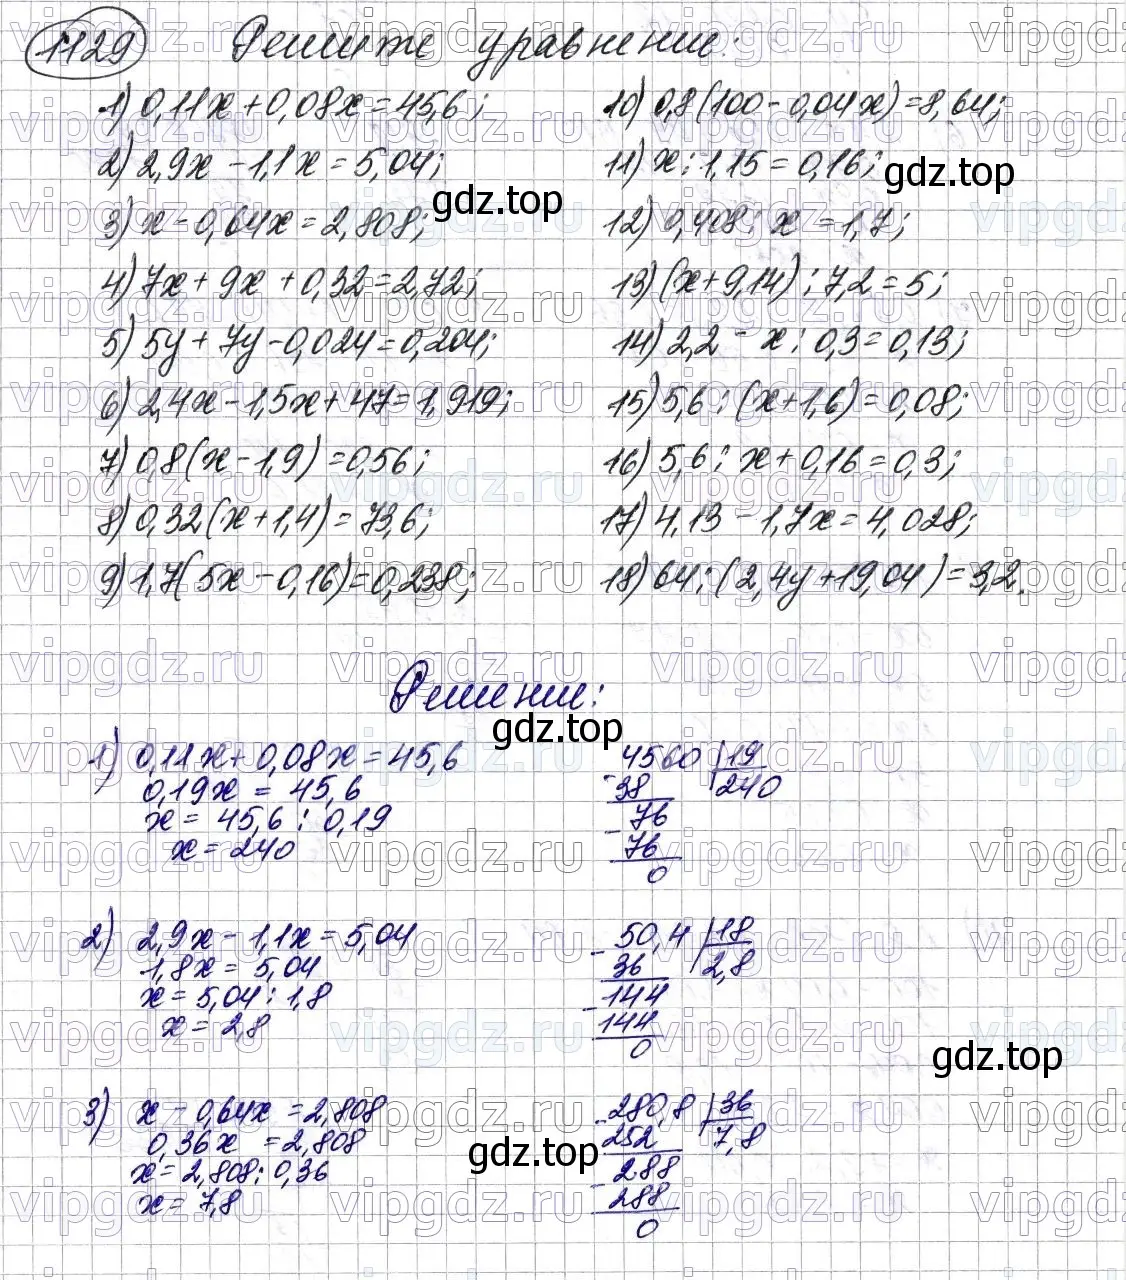 1129 Решите уравнение:
1) 0,11x + 0,08x = 45,6;
2) 2,9x - 1,1x = 5,04;
3) x - 0,64x = 2,808;
4) 7x + 9x + 0,32 = 2,72;
5) 5y + 7y - 0,024 = 0,204;
6) 2,4x - 1,5x + 47 = 1,919;
7) 0,8(x - 1,9) = 0,56;
8) 0,32(x + 1,4) = 73,6;
9) 1,7(5x - 0,16) = 0,238;
10) 0,8(100 - 0,04x) = 8,64;
11) x : 1,15 = 0,16;
12) 0,408 : x = 1,7;
13) (x + 9,14) : 7,2 = 5;
14) 2,2 - x : 0,3 = 0,13;
15) 5,6 : (x + 1,6) = 0,08;
16) 5,6 : x + 0,16 = 0,3;
17) 4,13 - 1,7x = 4,028;
18) 64 : (2,4y + 19,04) = 3,2.
Решение:
1) 0,11x + 0,08x = 45,6
0,19x = 45,6
x = 45,6 : 0,19
x = 240
4560 | 19
- 38 240
76
- 76
0
2) 2,9x - 1,1x = 5,04
1,8x = 5,04
x = 5,04 : 1,8
x = 2,8
- 50,4 | 18
36 2,8
- 144
144
0
3) x - 0,64x = 2,808
0,36x = 2,808
x = 2,808 : 0,36
x = 7,8
- 280,8 | 36
252 7,8
- 288
288
0
gdz.top
gdz.top
gdz.top
gdz.top
gdz.top
vipgdz.ru